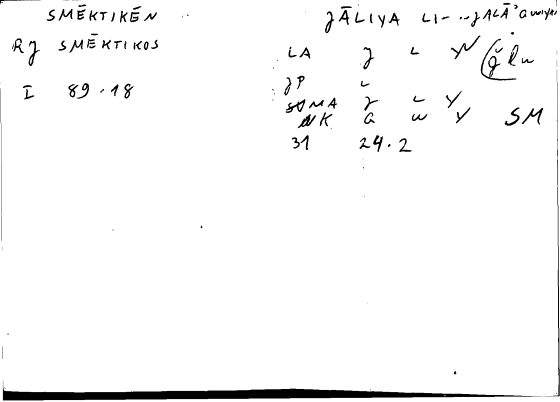 SMĒKTIKĒN
RJ SMĒKTIKOS
I 89.18
JĀLIYA LI- ..JALĀ'
LA J L Y
JP L
SUMA J L Y
NK Q W Y SM
31 24.2